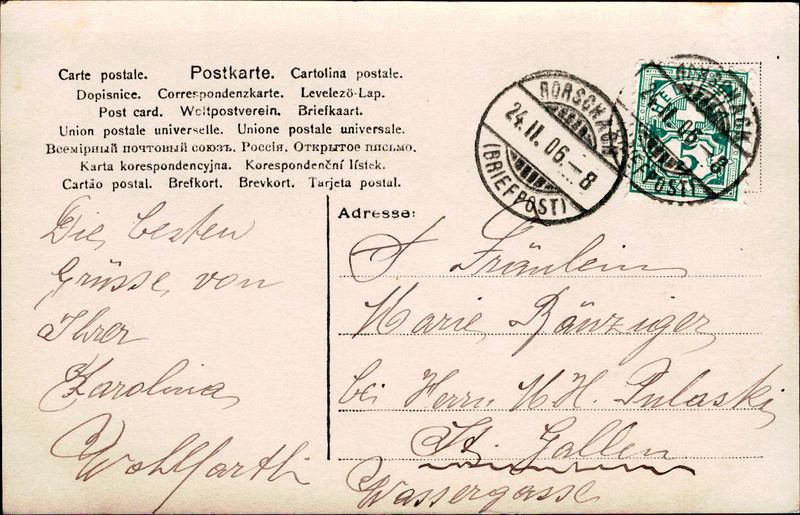 Carte postale. Postkarte. Cartolina postale.
Dopisnice. Correspondenzkarte. Levelező-Lap.
Post card. Weltpostverein. Briefkaart.
Union postale universelle. Unione postale universale.
Всемірный почтовый союзъ. Россія. Открытое письмо.
Karta korespondencyjna. Korespondenční lístek.
Cartão postal. Brefkort. Brevkort. Tarjeta postal.
RORSCHACH
24.II.06.–8
(BRIEFPOST)
HE
5
RORSCHACH
24.II.06.–8
(BRIEFPOST)
Adresse:
Die besten
Grüsse von
Ihrer
Karolina
Wohlfarth
Fräulein
Marie Bänziger
bei Herrn Pulaski
St. Gallen
Wassergasse